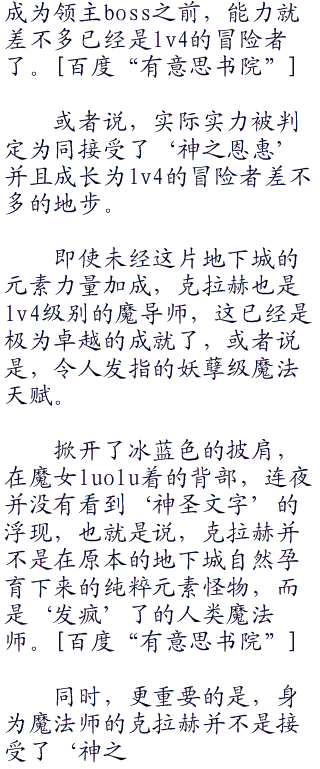 成为领主boss之前，能力就
差不多已经是lv4的冒险者
了。[百度“有意思书院”]
或者说，实际实力被判
定为同接受了‘神之恩惠’
并且成长为lv4的冒险者差不
多的地步。
即使未经这片地下城的
元素力量加成，克拉赫也是
lv4级别的魔导师，这已经是
极为卓越的成就了，或者说
是，令人发指的妖孽级魔法
天赋。
掀开了冰蓝色的披肩，
在魔女luolu着的背部，连夜
并没有看到‘神圣文字’的
浮现，也就是说，克拉赫并
不是在原本的地下城自然孕
育下来的纯粹元素怪物，而
是‘发疯’了的人类魔法
师。[百度“有意思书院”]
同时，更重要的是，身
为魔法师的克拉赫并不是接
受了‘神之